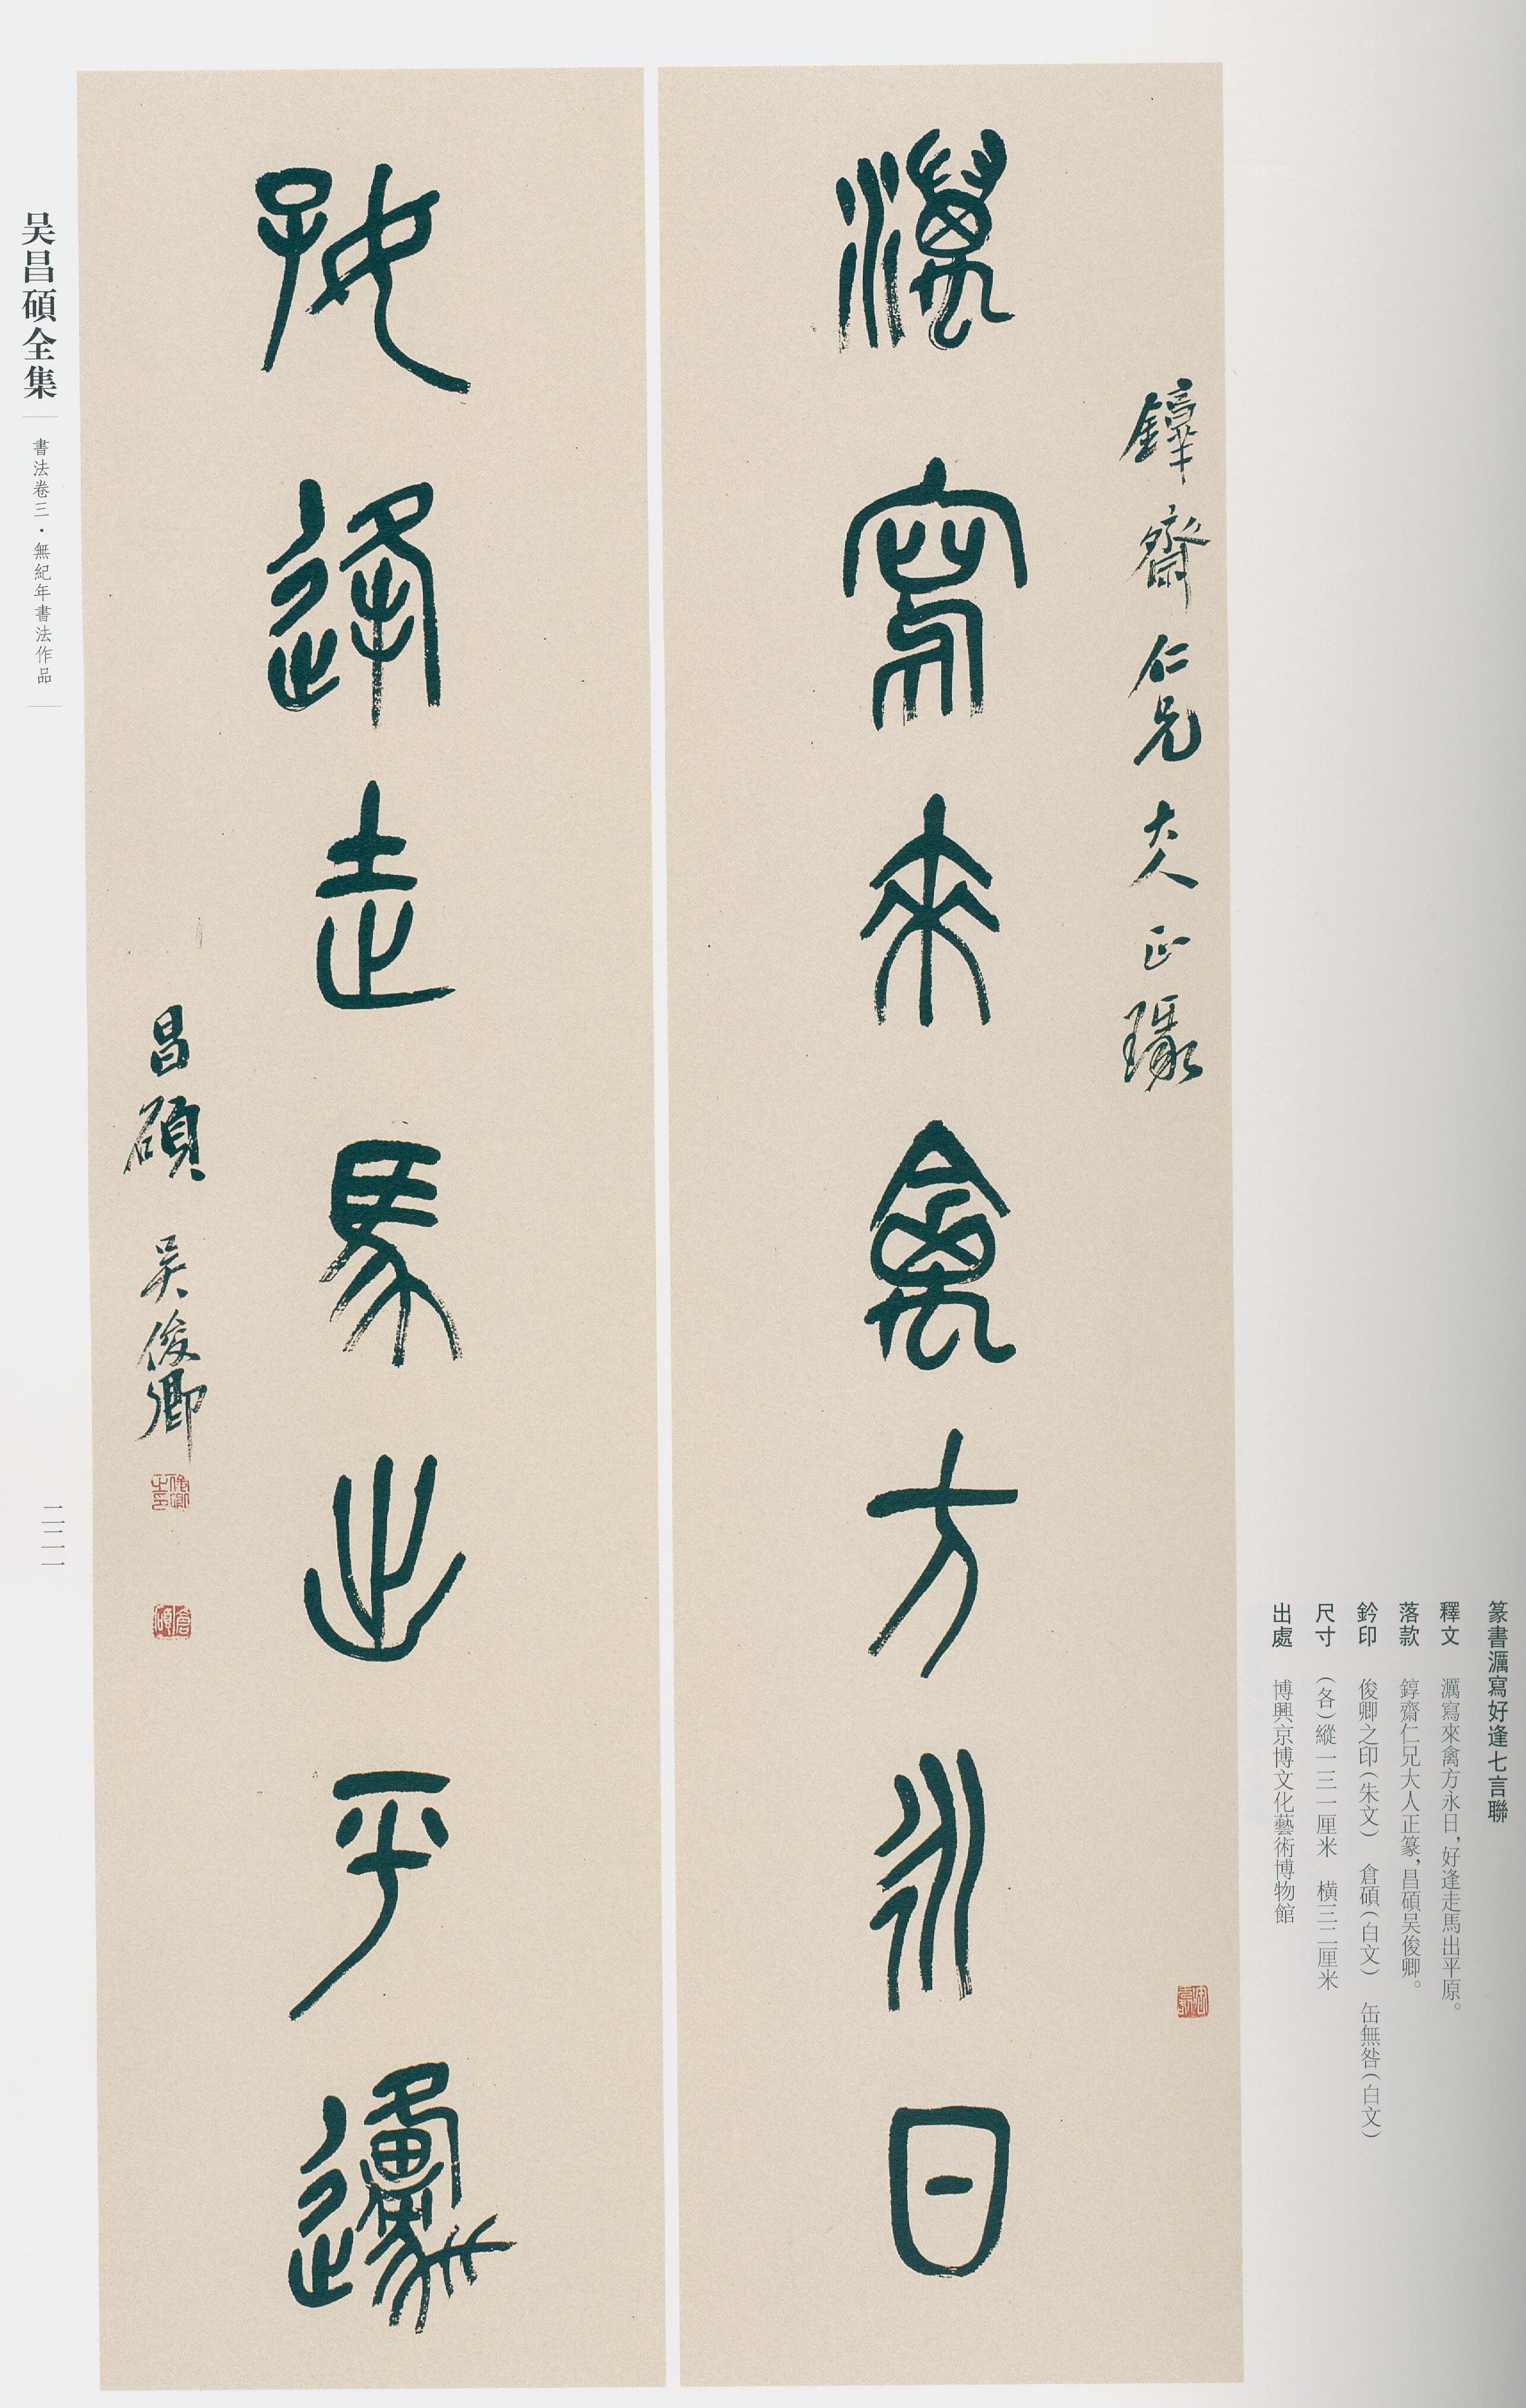 濿寫來禽方永日
錞齋仁兄大人正瑑
好逢走馬出平邍
昌碩吳俊卿
篆書濿寫好逢七言聯
釋文 濿寫來禽方永日，好逢走馬出平原。
落款 錞齋仁兄大人正篆，昌碩吴俊卿。
鈐印 俊卿之印（朱文） 倉碩（白文） 缶無咎（白文）
尺寸 （各）縱一三一厘米 横三二厘米
出處 博興京博文化藝術博物館
吴昌碩全集
書法卷三·無紀年書法作品
二二一
俊卿之印
倉碩